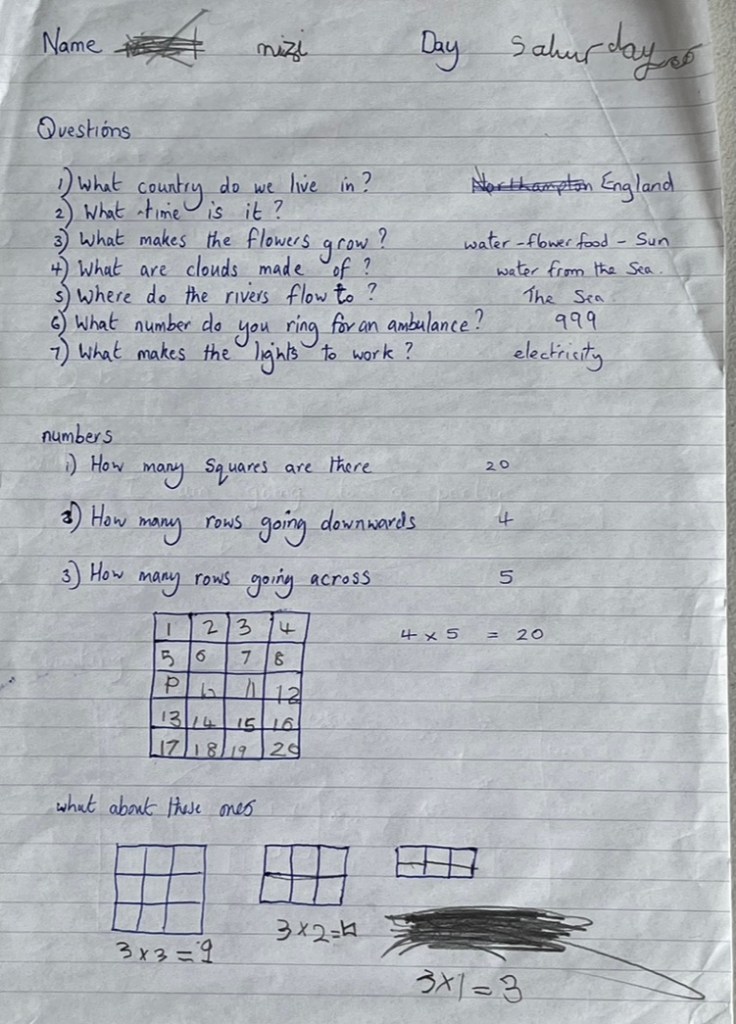 Name mizi Day Sahurday
Questions
1) What country do we live in? Northampton England
2) What time is it?
3) What makes the flowers grow? water - flower food - Sun
4) What are clouds made of? water from the Sea.
5) Where do the rivers flow to? The Sea
6) What number do you ring for an ambulance? 999
7) What makes the lights to work? electricity
numbers
1) How many Squares are there 20
2) How many rows going downwards 4
3) How many rows going across 5
1 2 3 4 4 x 5 = 20
5 6 7 8
11 12
13 14 15 16
17 18 19 20
what about these ones
3 x 3 = 9
3 x 2 =
3 x 1 = 3